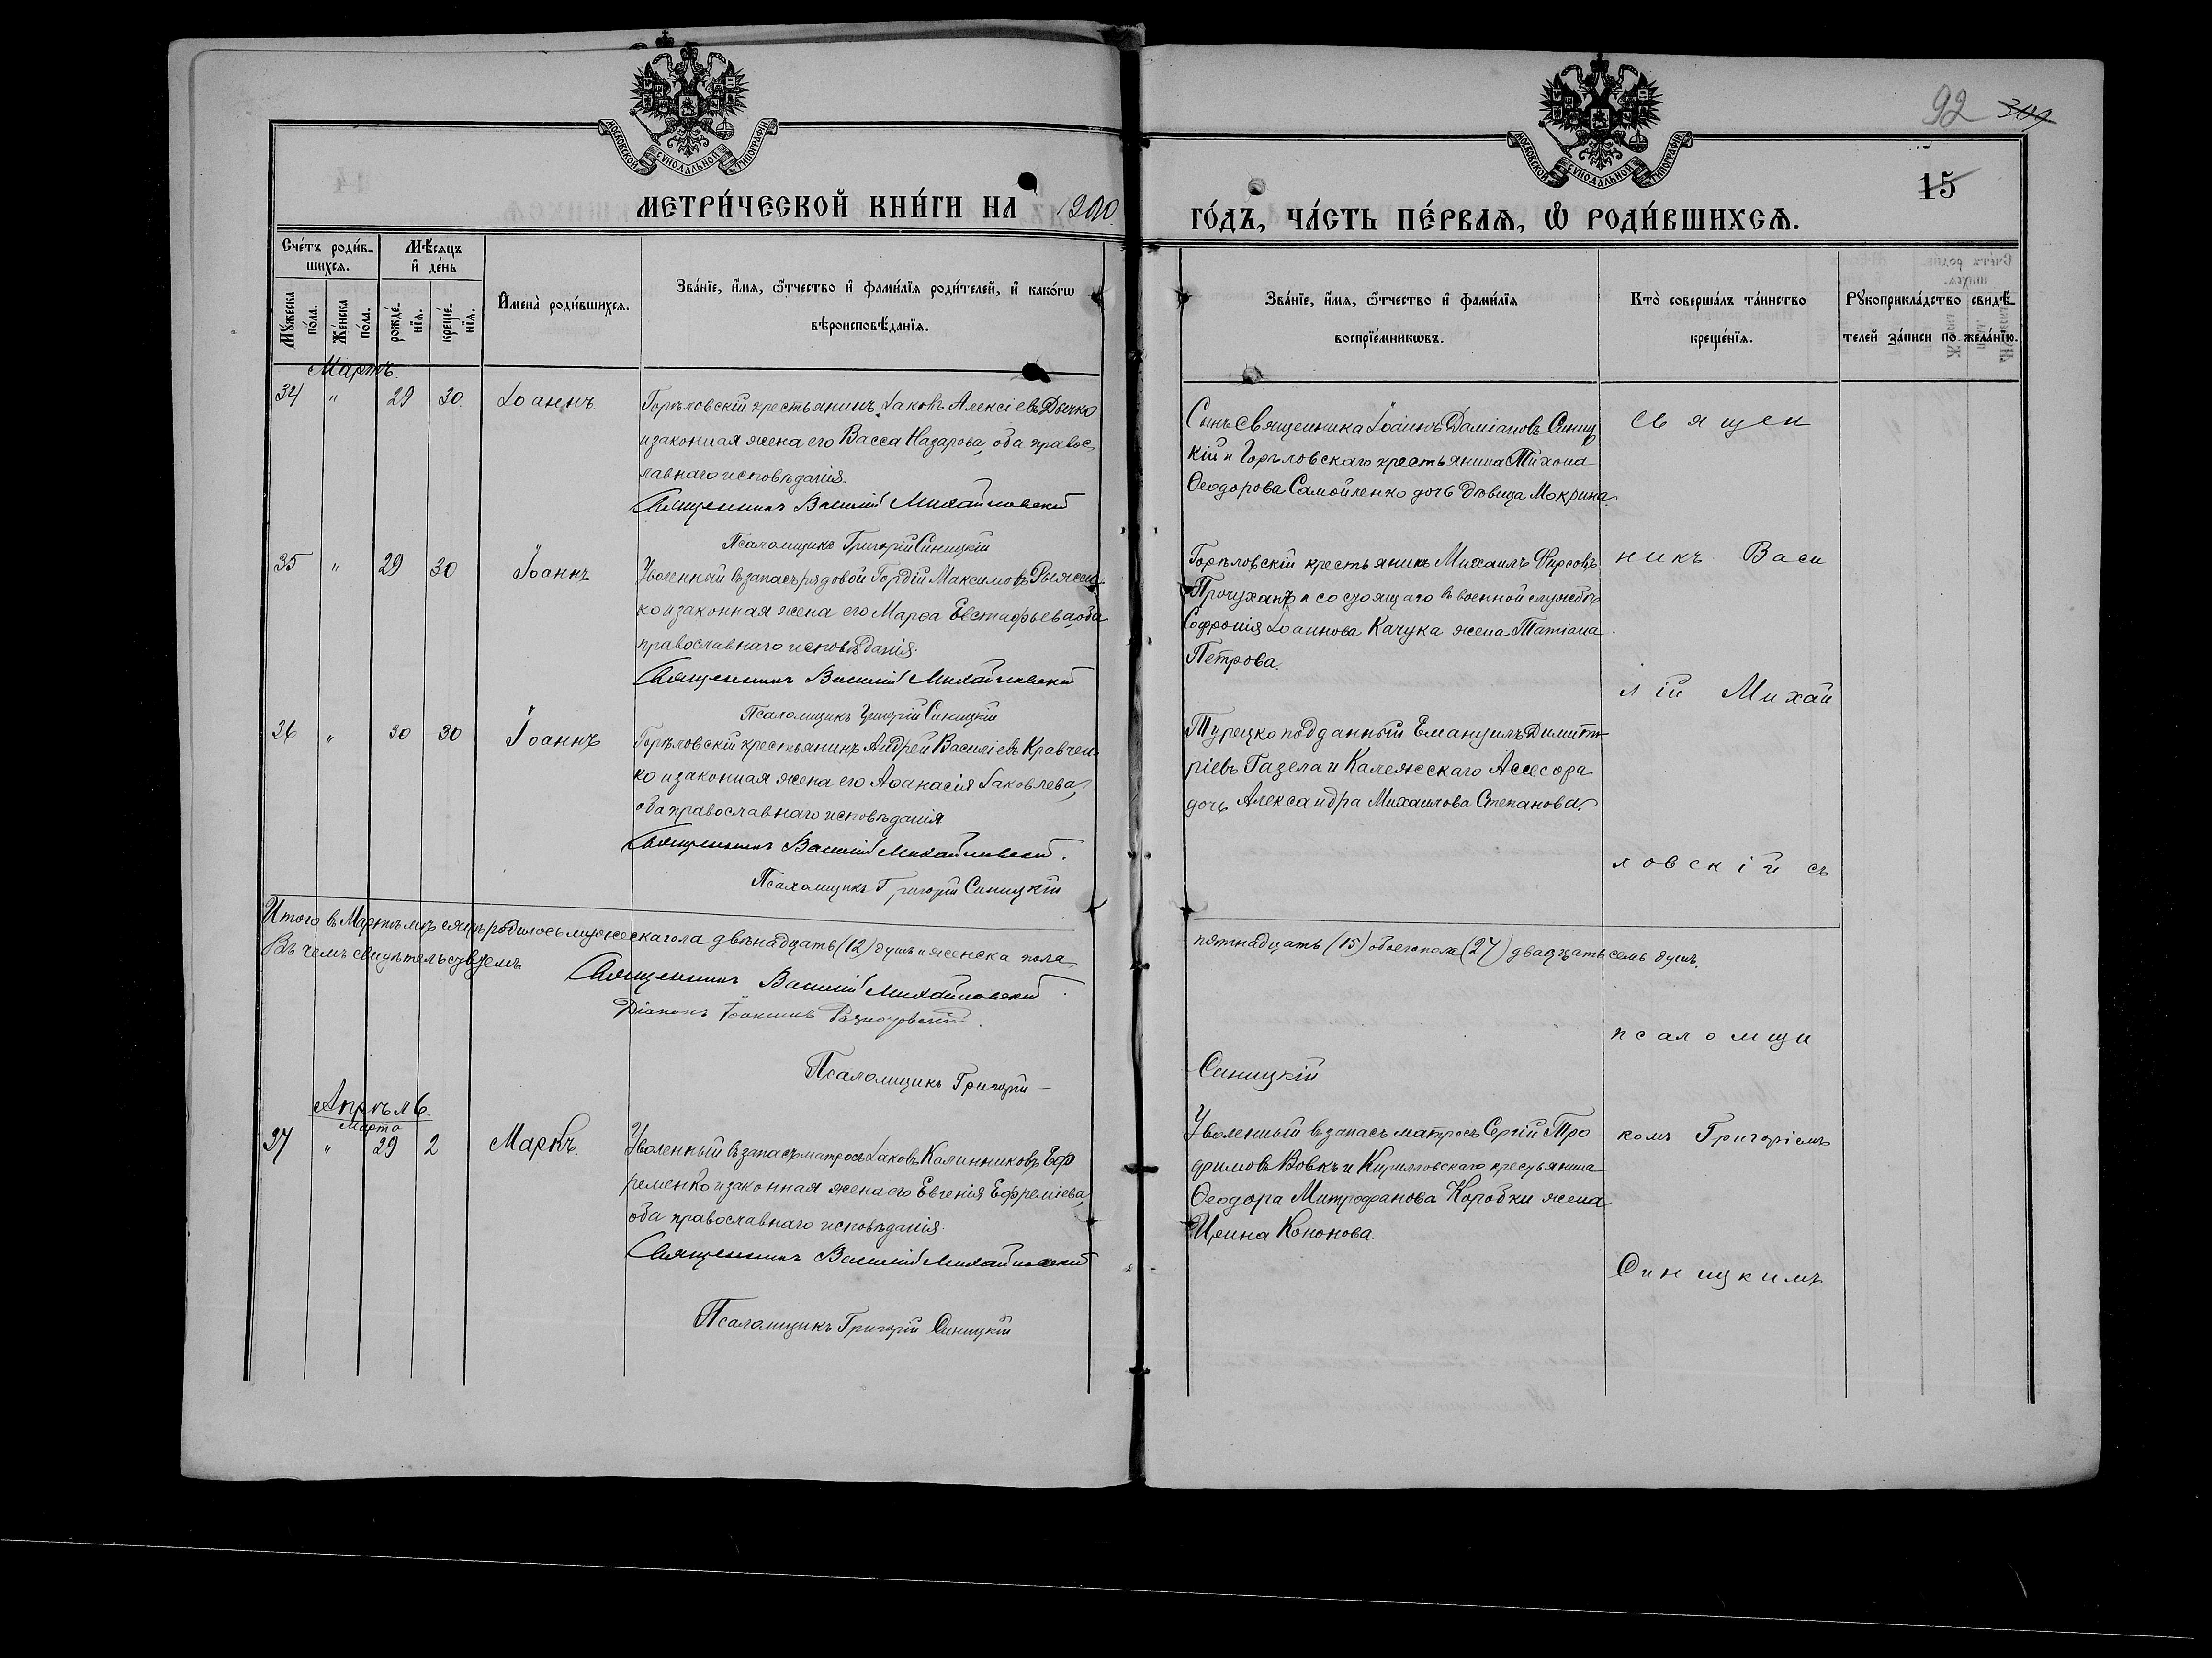 92 309
МОСКОВСКОЙ СУНОДАЛЬНОЙ ТИПОГРАФІИ
МОСКОВСКОЙ СУНОДАЛЬНОЙ ТИПОГРАФІИ
15
МЕТРИ́ЧЕСКОЙ КНИ́ГИ НА 1900
ГО́ДЪ, ЧА́СТЬ ПЕ́РВАѦ, Ѡ РОДИ́ВШИХСѦ.
Сче́тъ роди́в-
шихсѧ.
Мѣ́сѧцъ
и҆ де́нь
Мꙋ́жеска
по́ла.
Же́нска
по́ла.
рожде́-
нїѧ.
креще́-
нїѧ.
И҆мена̀ роди́вшихсѧ.
Зва́нїе, и҆́мѧ, ѻ҆́тчество и҆ фами́лїѧ роди́телей, и҆ како́гѡ
вѣроисповѣ́данїѧ.
Зва́нїе, и҆́мѧ, ѻ҆́тчество и҆ фами́лїѧ
воспрїе́мникѡвъ.
Кто̀ соверша́лъ та́инство
креще́нїѧ.
Рꙋкоприкла́дство свидѣ́-
телей за́писи по жела́нїю.
Мартъ.
34 " 29 30. Іоаннъ.
Горѣловскій крестьянинъ Іаковъ Алексіевъ Дычко
и законная жена его Васса Назарова, оба правос
лавнаго исповѣданія.
Священникъ Василій Михайловскій
Псаломщикъ Григорій Синицкій
Сынъ священника Іоаннъ Даміановъ Синиц
кій и Горѣловскаго крестьянина Тихона
Ѳеодорова Самойленко дочь дѣвица Мокрина.
Священ
35 " 29 30 Іоаннъ
Уволенный въ запасъ рядовой Гордій Максимовъ
ко и законная жена его Марѳа Евстафьева, оба
православнаго исповѣданія.
Священникъ Василій Михайловскій
Псаломщикъ Григорій Синицкій
Горѣловскій крестьянинъ Михаилъ Фирсовъ
и состоящаго въ военной службѣ
Софронія Іоаннова Качука жена Татіана
Петрова.
никъ Васи
лій Михай
36 " 30 30 Іоаннъ
Горѣловскій крестьянинъ Андрей Василіевъ Кравчен
ко и законная жена его Аѳанасія Іаковлева,
оба православнаго исповѣданія
Священникъ Василій Михайловскій.
Псаломщикъ Григорій Синицкій
Турецко подданный Емануилъ Димитт
ріевъ Газела и Калежскаго Ассесора
дочь Александра Михаилова Степанова.
ловскій съ
Итого въ Мартѣ мѣсяцѣ родилось мужеска пола двѣнадцать (12) душъ и женска пола
пятнадцать (15) обоего пола (27) двадцать семь душъ.
Въ чемъ свидѣтельствуемъ
Священникъ Василій Михайловскій.
Діаконъ
Псаломщикъ Григорій –
Синицкій
псаломщи
Апрѣль.
Марта
37 " 29 2 Маркъ.
Уволенный въ запасъ матросъ Іаковъ Калинниковъ Еф
ременко и законная жена его Евгенія Ефреміева,
оба православнаго исповѣданія.
Священникъ Василій Михайловскій
Псаломщикъ Григорій Синицкій
Уволенный въ запасъ матросъ Сергій Тро
фимовъ Вовкъ и Кирилловскаго крестьянина
Ѳеодора Митрофанова Коробки жена
Ирина Кононова.
комъ Григоріемъ
Синицкимъ